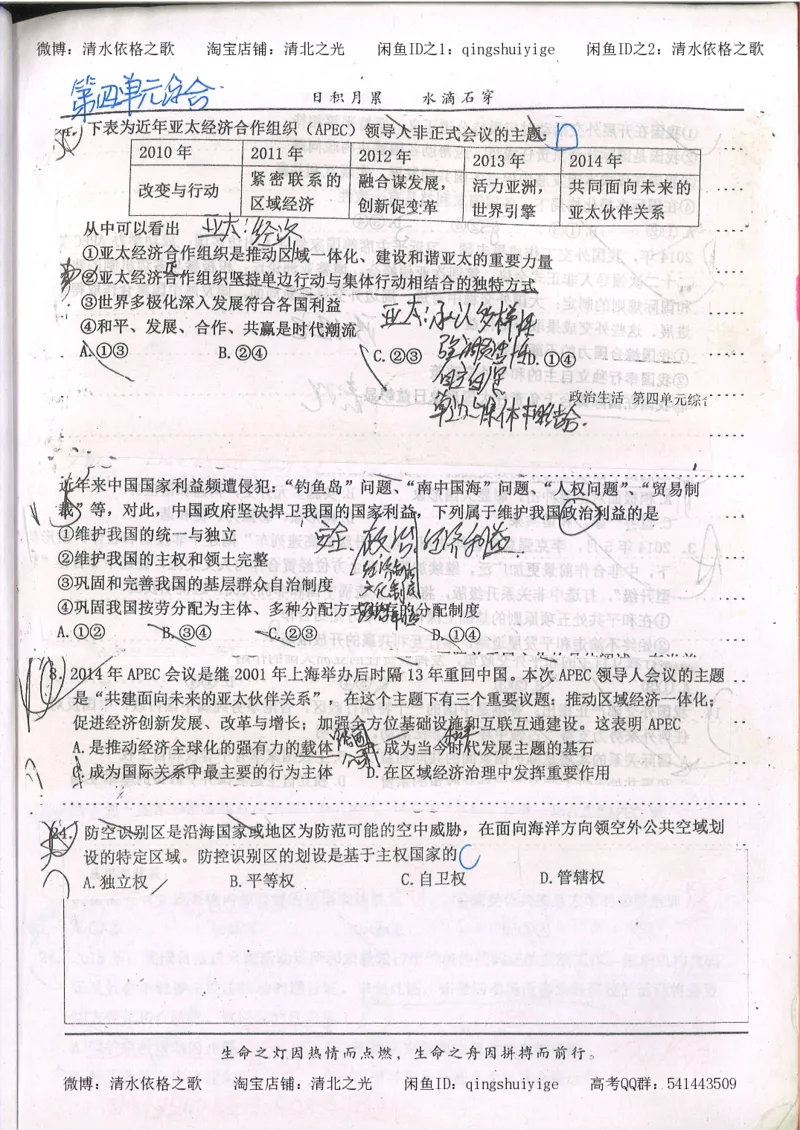 微博：清水依格之歌 淘宝店铺：清北之光 闲鱼ID之1：qingshuiyige 闲鱼ID之2：清水依格之歌
第四单元综合
日积月累 水滴石穿
下表为近年亚太经济合作组织（APEC）领导人非正式会议的主题。 D
2010 年 2011 年 2012 年 2013 年 2014 年
改变与行动 紧密联系的区域经济 融合谋发展，创新促变革 活力亚洲，世界引擎 共同面向未来的亚太伙伴关系
从中可以看出 亚太：经济
①亚太经济合作组织是推动区域一体化、建设和谐亚太的重要力量
②亚太经济合作组织坚持单边行动与集体行动相结合的独特方式
③世界多极化深入发展符合各国利益
④和平、发展、合作、共赢是时代潮流
亚太：承认多样性
强调灵活性
自主自愿
单边与集体相结合.
A.①③ B.②④ C.②③ D.①④
政治生活 第四单元综合
近年来中国国家利益频遭侵犯：“钓鱼岛”问题、“南中国海”问题、“人权问题”、“贸易制
裁”等，对此，中国政府坚决捍卫我国的国家利益，下列属于维护我国政治利益的是
①维护我国的统一与独立
安全、政治、经济利益
②维护我国的主权和领土完整
③巩固和完善我国的基层群众自治制度
④巩固我国按劳分配为主体、多种分配方式并存的分配制度
A.①② B.③④ C.②③ D.①④
8. 2014 年 APEC 会议是继 2001 年上海举办后时隔 13 年重回中国。本次 APEC 领导人会议的主题
是“共建面向未来的亚太伙伴关系”，在这个主题下有三个重要议题：推动区域经济一体化；
促进经济创新发展、改革与增长；加强全方位基础设施和互联互通建设。这表明 APEC
A.是推动经济全球化的强有力的载体 B.成为当今时代发展主题的基石
跨国公司 和平
C.成为国际关系中最主要的行为主体 D.在区域经济治理中发挥重要作用
24. 防空识别区是沿海国家或地区为防范可能的空中威胁，在面向海洋方向领空外公共空域划
设的特定区域。防控识别区的划设是基于主权国家的 C
A.独立权 B.平等权 C.自卫权 D.管辖权
生命之灯因热情而点燃，生命之舟因拼搏而前行。
微博：清水依格之歌 淘宝店铺：清北之光 闲鱼ID之1：qingshuiyige 高考QQ群：541443509